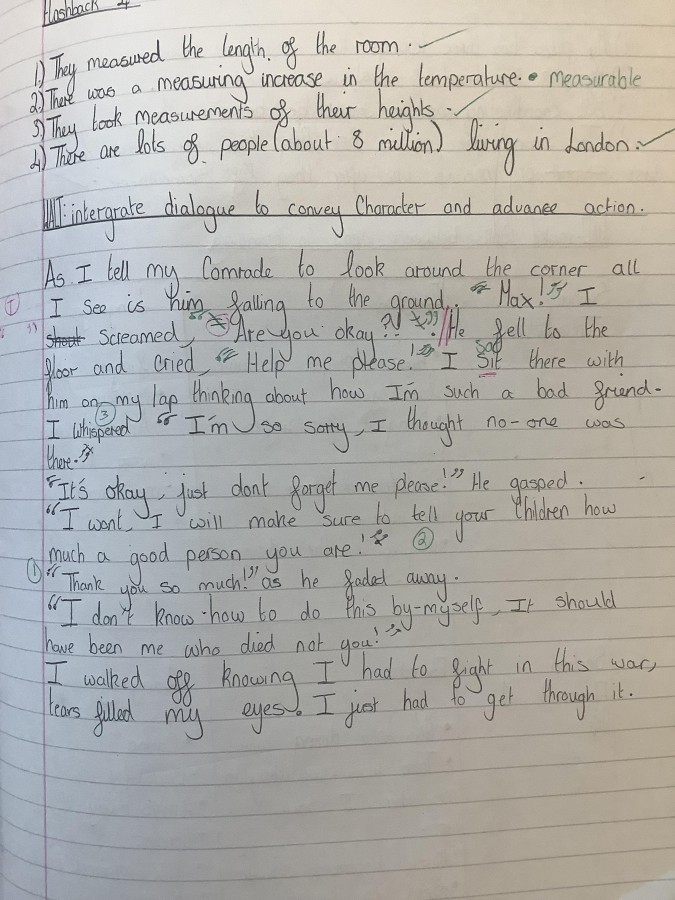 Flashback 4
1) They measured the length. of the room.
2) There was a measuring increase in the temperature. • measurable
3) They took measurements of their heights.
4) There are lots of people (about 8 million) living in London.
WALT: intergrate dialogue to convey Character and advance action.
As I tell my Comrade to look around the corner all
I see is him falling to the ground. "Max!" I
shout screamed, "Are you okay?!" He fell to the
floor and cried, "Help me please!" I sit sat there with
him on my lap thinking about how I'm such a bad friend.
I whispered "I'm so sorry, I thought no-one was
there."
"It's okay, just dont forget me please!" He gasped.
"I wont, I will make sure to tell your Children how
much a good person you are!" 2
1 "Thank you so much!" as he faded away.
"I don't know how to do this by-myself, It should
have been me who died not you!"
I walked off knowing I had to fight in this war,
tears filled my eyes. I just had to get through it.